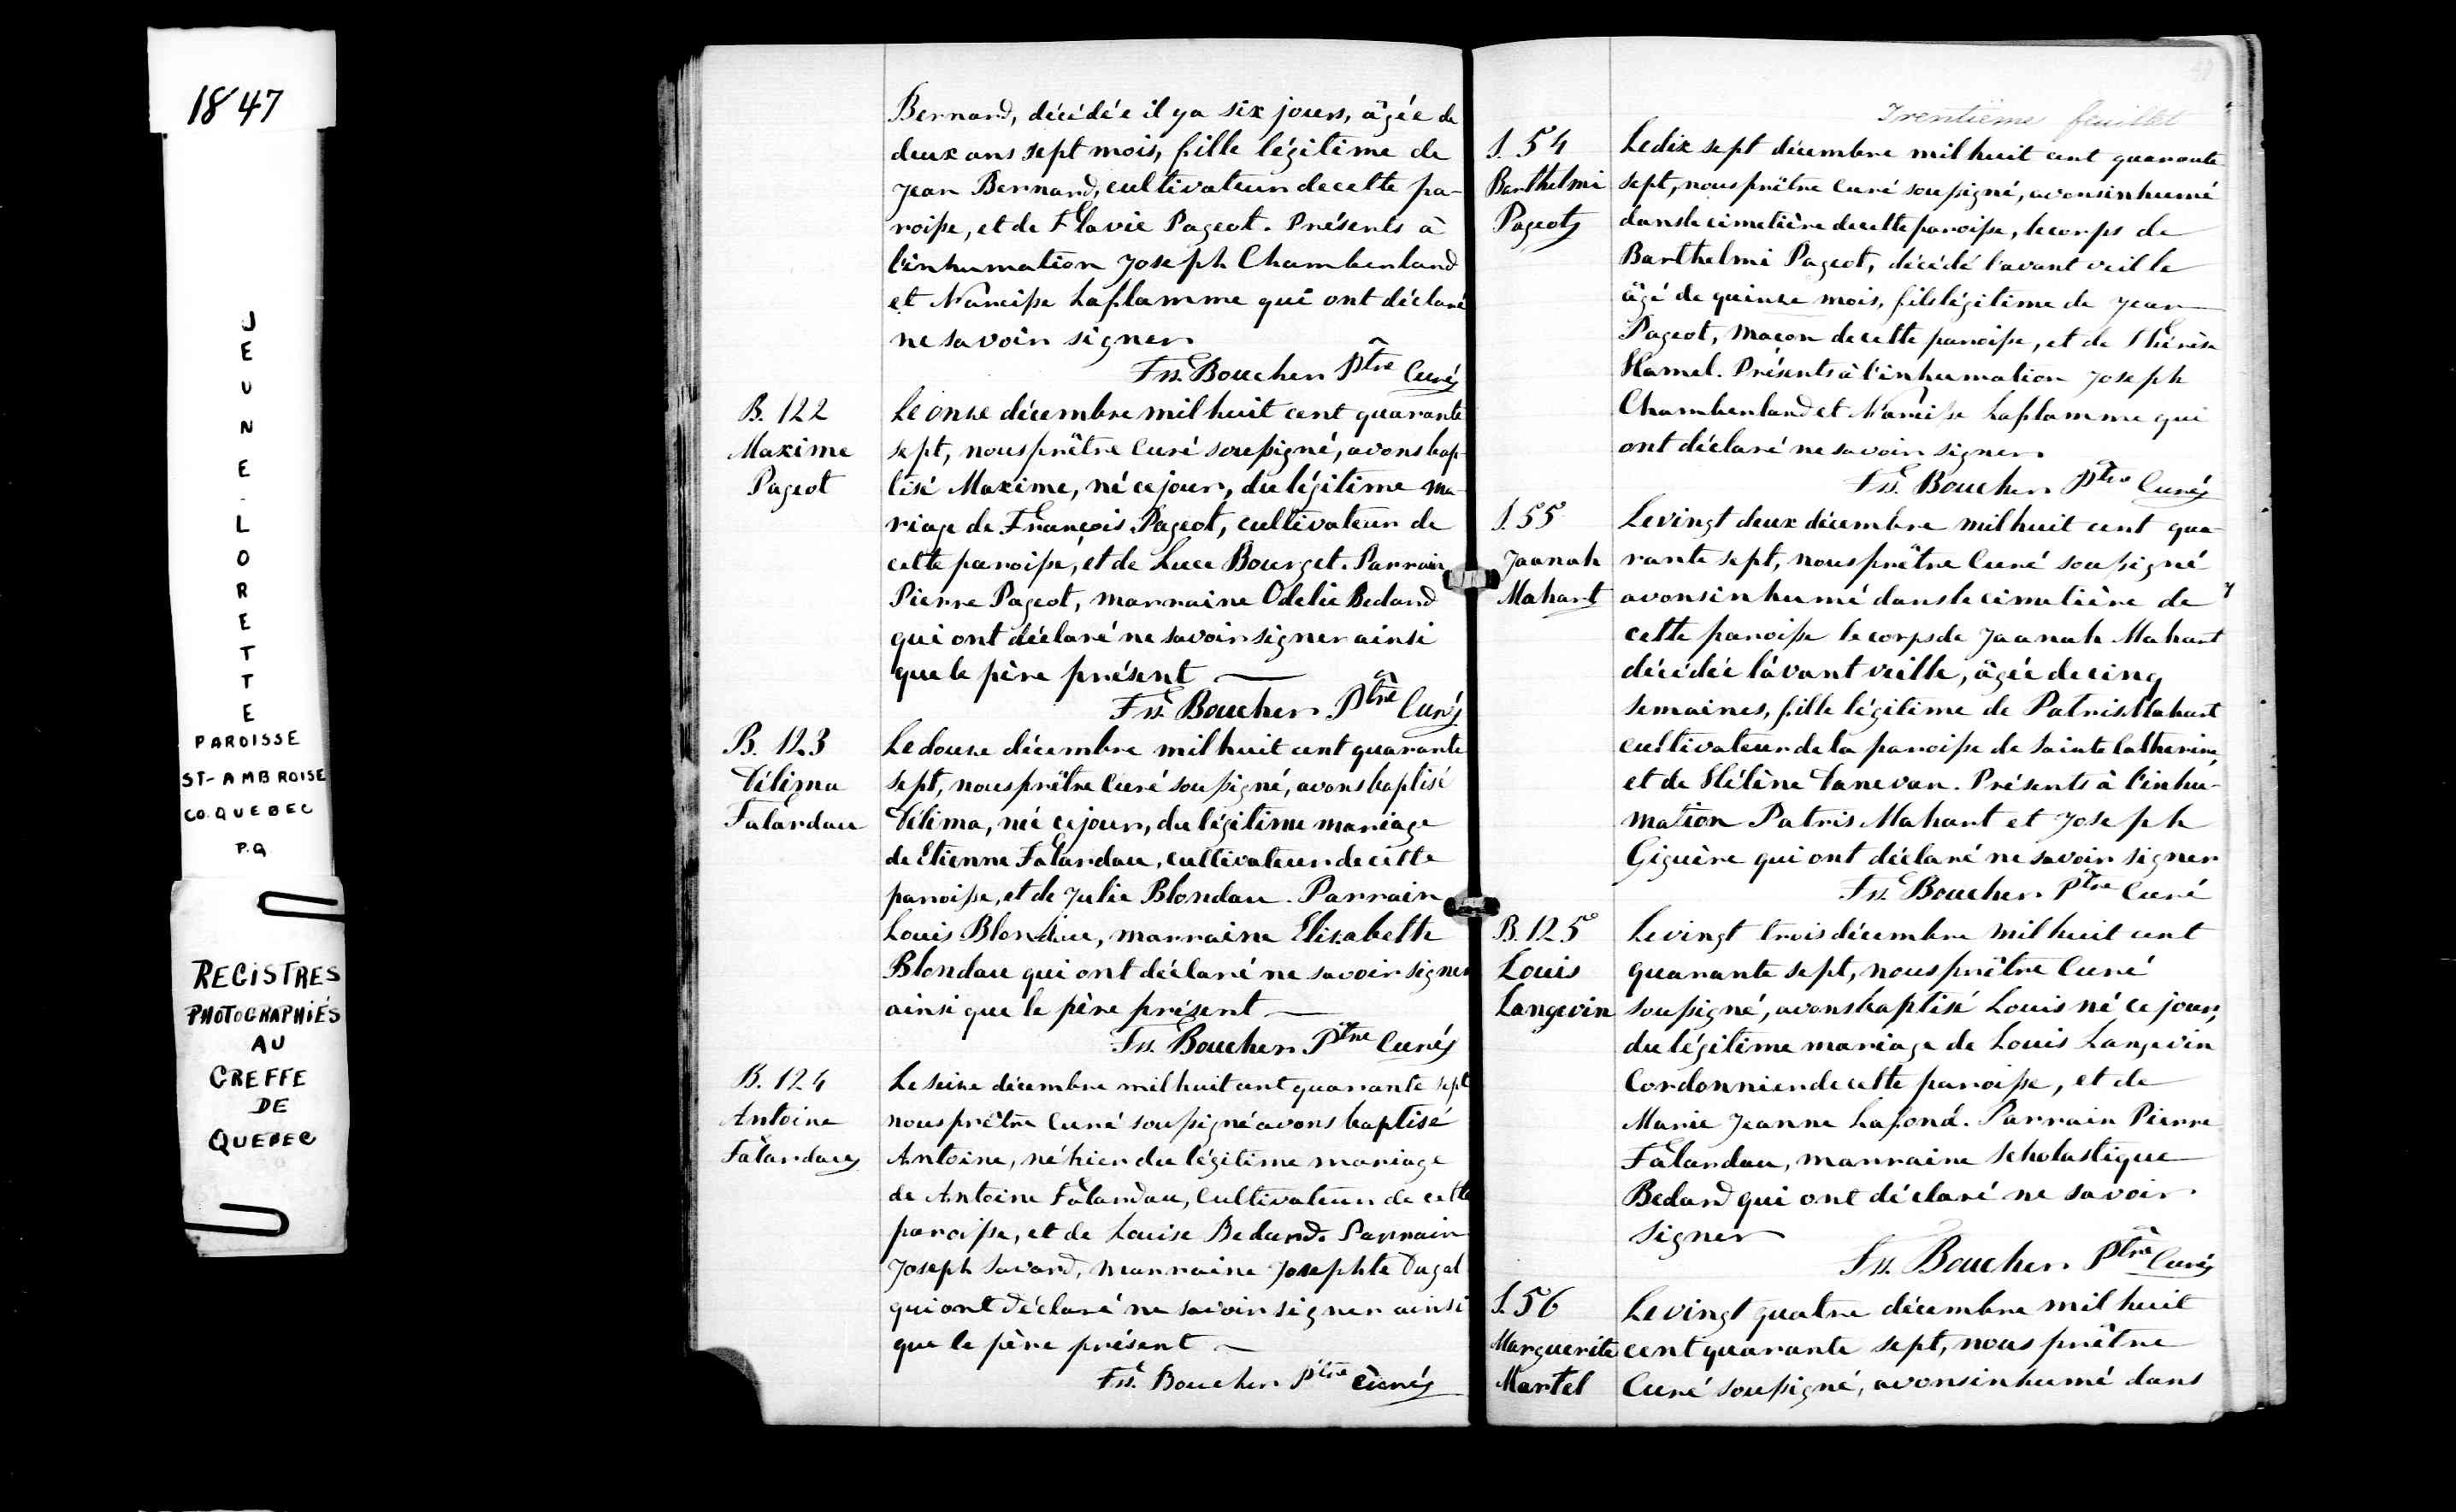 1847
JEUNE-LORETTE
PAROISSE
ST-AMBROISE
CO. QUEBEC
P.Q
REGISTRES
PHOTOGRAPHIÉS
AU
GREFFE
DE
QUEBEC
Bernard, décédée il y a six jours, âgée de
deux ans sept mois, fille légitime de
Jean Bernard, cultivateur de cette pa-
roisse, et de Flavie Pageot. Présents à
l'inhumation Joseph Chamberland
et Narcisse Laflamme qui ont déclaré
ne savoir signer
Frs. Boucher Ptre Curé
B. 122
Maxime
Pageot
Le onze décembre mil huit cent quarante
sept, nous prêtre Curé soussigné, avons bap-
tisé Maxime, né ce jour, du légitime ma-
riage de François Pageot, cultivateur de
cette paroisse, et de Luce Bourget. Parrain
Pierre Pageot, marraine Odelie Bedard
qui ont déclaré ne savoir signer ainsi
que le père présent —
Frs. Boucher Ptre Curé
B. 123
Télima
Falardau
Le douze décembre mil huit cent quarante
sept, nous prêtre Curé soussigné, avons baptisé
Télima, née ce jour, du légitime mariage
de Etienne Falardau, cultivateur de cette
paroisse, et de Julie Blondau. Parrain
Louis Blondau, marraine Elisabeth
Blondau qui ont déclaré ne savoir signer
ainsi que le père présent —
Frs. Boucher Ptre Curé
B. 124
Antoine
Falardau
Le seize décembre mil huit cent quarante sept
nous prêtre Curé soussigné avons baptisé
Antoine, né hier du légitime mariage
de Antoine Falardau, Cultivateur de cette
paroisse, et de Louise Bedard. Parrain
Joseph Savard, marraine Josephte Dugal
qui ont déclaré ne savoir signer ainsi
que le père présent —
Frs. Boucher Ptre Curé
Trentième feuillet
S. 54
Barthelmi
Pageot
Le dix sept décembre mil huit cent quarante
sept, nous prêtre Curé soussigné, avons inhumé
dans le cimetière de cette paroisse, le corps de
Barthelmi Pageot, décédé l'avant veille
âgé de quinze mois, fils légitime de Jean
Pageot, Maçon de cette paroisse, et de Thérèse
Hamel. Présents à l'inhumation Joseph
Chamberland et Narcisse Laflamme qui
ont déclaré ne savoir signer.
Frs. Boucher Ptre Curé
S. 55
Jaanah
Mahart
Le vingt deux décembre mil huit cent qua-
rante sept, nous prêtre Curé soussigné
avons inhumé dans le cimetière de
cette paroisse le corps de Jaanah Mahart
décédée l'avant veille, âgée de cinq
semaines, fille légitime de Patris Mahart
cultivateur de la paroisse de Sainte Catherine,
et de Hélène Tanevan. Présents à l'inhu-
mation Patris Mahart et Joseph
Giguère qui ont déclaré ne savoir signer
Frs. Boucher Ptre Curé
B. 125
Louis
Langevin
Le vingt trois décembre mil huit cent
quarante sept, nous prêtre Curé
soussigné, avons baptisé Louis né ce jour,
du légitime mariage de Louis Langevin
Cordonnier de cette paroisse, et de
Marie Jeanne Lafond. Parrain Pierre
Falardau, marraine Scholastique
Bedard qui ont déclaré ne savoir
signer
Frs. Boucher Ptre Curé
S. 56
Marguerite
Martel
Le vingt quatre décembre mil huit
cent quarante sept, nous prêtre
Curé soussigné, avons inhumé dans